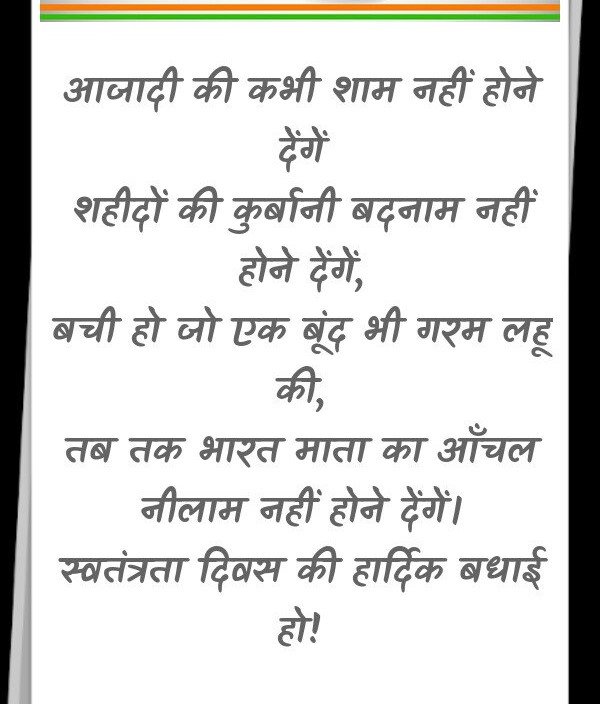 आजादी की कभी शाम नहीं होने
देंगें
शहीदों की कुर्बानी बदनाम नहीं
होने देंगें,
बची हो जो एक बूंद भी गरम लहू
की,
तब तक भारत माता का आँचल
नीलाम नहीं होने देंगें।
स्वतंत्रता दिवस की हार्दिक बधाई
हो!